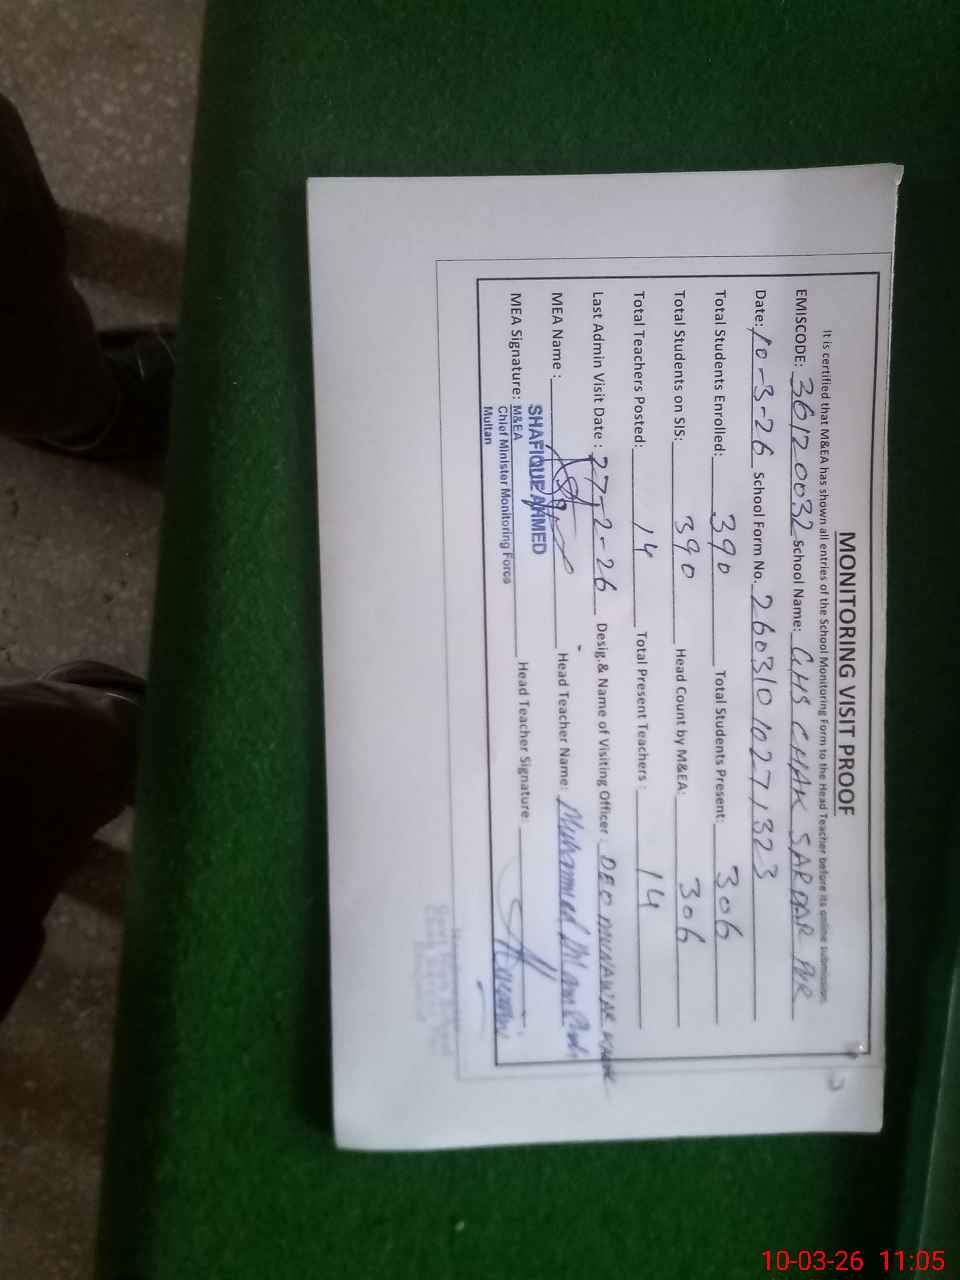 MONITORING VISIT PROOF
It is certified that M&EA has shown all entries of the School Monitoring Form to the Head Teacher before its online submission
EMISCODE: 36120032 School Name: GHS CHAK SARDAR PUR
Date: 10-3-26 School Form No. 26031010271323
Total Students Enrolled: 390 Total Students Present: 306
Total Students on SIS: 390 Head Count by M&EA: 306
Total Teachers Posted: 14 Total Present Teachers: 14
Last Admin Visit Date: 27-2-26 Desig.& Name of Visiting Officer: DEO MUNAWAR
MEA Name: Head Teacher Name: Muhammad
SHAFIQUE AHMED
MEA Signature: M&EA Head Teacher Signature:
Chief Minister Monitoring Force
Multan
10-03-26 11:05